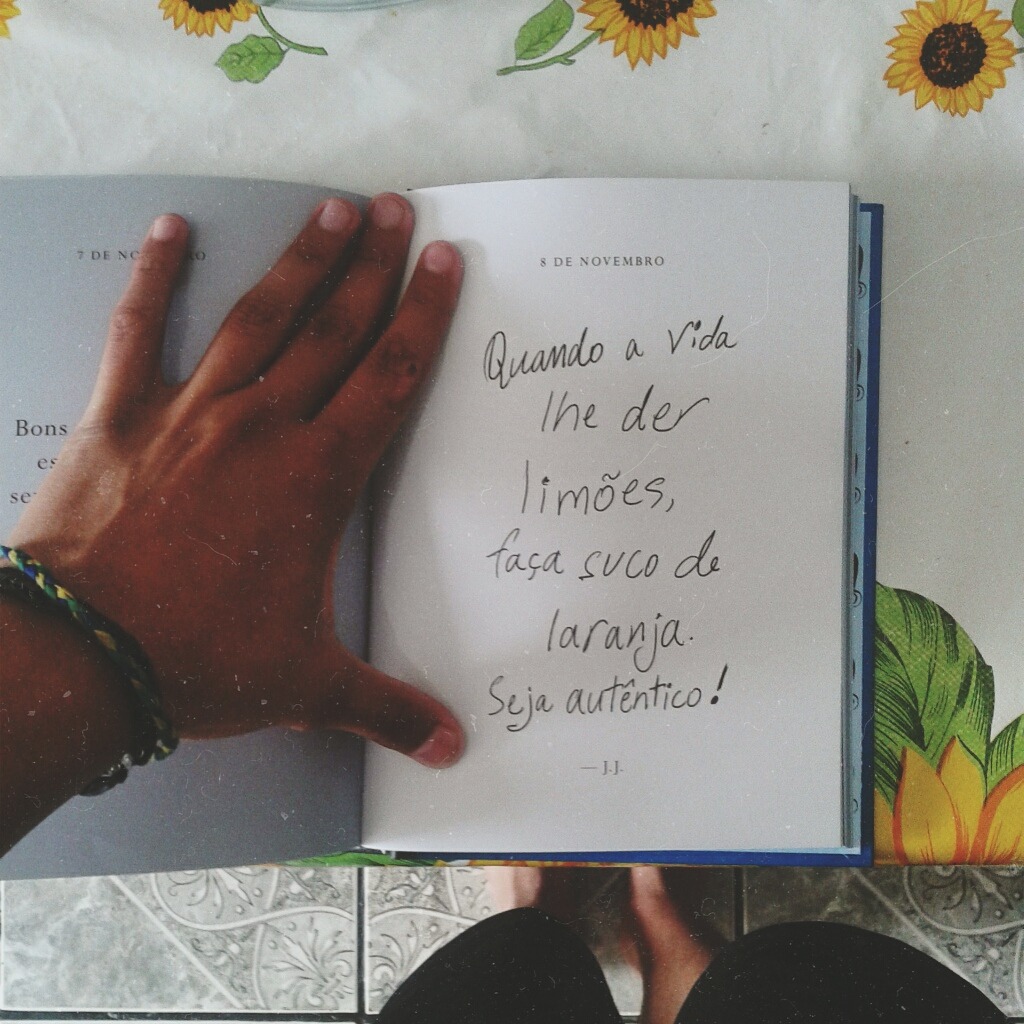 7 DE NO
RO
Bons
es
8 DE NOVEMBRO
Quando a vida
lhe der
limões,
faça suco de
laranja.
Seja autêntico!
— J.J.